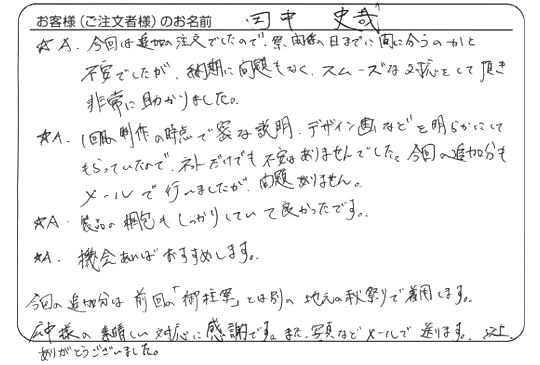 お客様(ご注文者様)のお名前 田中 史哉
☆A. 今回は追加の注文でしたので、祭関係の日までに間に合うのかと
不安でしたが、納期に問題もなく、スムーズな対応をして頂き
非常に助かりました。
☆A. 1回目の制作の時点で密な説明、デザイン画などを明らかにして
もらっていたので、ネットだけでも不安はありませんでした。今回の追加分も
メールで行いましたが、問題ありません。
☆A. 製品の梱包もしっかりしていて良かったです。
☆A. 機会あればおすすめします。
今回の追加分は前回の「御柱祭」とは別の地元の秋祭りで着用します。
様の素晴しい対応に感謝です。また、写真などメールで送ります。以上
ありがとうございました。